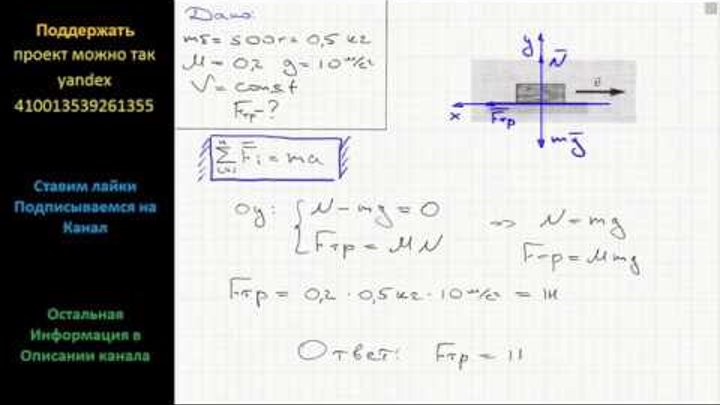 Поддержать
проект можно так
yandex
410013539261355
Ставим лайки
Подписываемся на
Канал
Остальная
Информация в
Описании канала
Дано:
mб = 500г = 0,5 кг
M = 0,2 g = 10 м/с²
V = const
Fтр - ?
n
∑ F̄i = ma
i=1
y
N̄
v
x
F̄тр
mḡ
oy: { N - mg = 0
Fтр = MN
=> N = mg
Fтр = Mmg
Fтр = 0,2 · 0,5кг · 10 м/с² = 1Н
Ответ: Fтр = 1